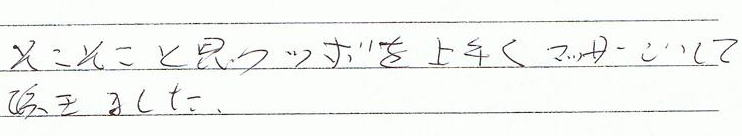 そこそこと思うツボを上手くマッサージして
頂きました。